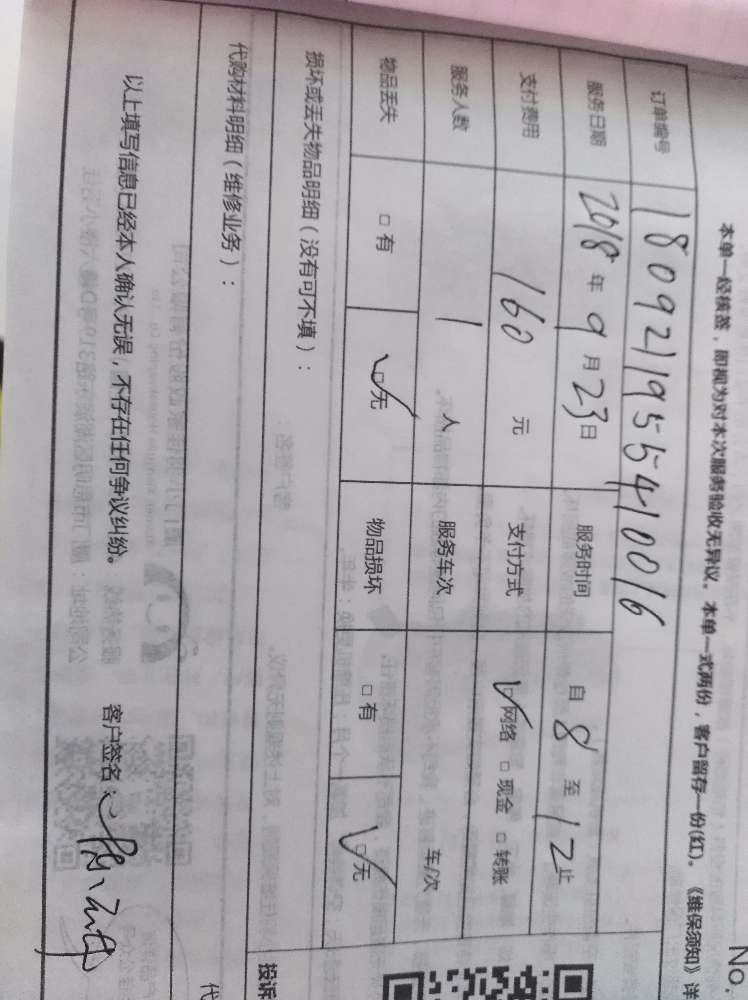 No.
本单一经核签，即视为对本次服务验收无异议。本单一式两份，客户留存一份(红)。《维保须知》详
订单编号 1809211955410016
服务日期 2018 年 9 月 23 日 服务时间 自 8 至 12 止
支付费用 160 元 支付方式 ☑网络 □现金 □转账
服务人数 1 人 服务车次 车/次
物品丢失 □有 ☑无 物品损坏 □有 ☑无
损坏或丢失物品明细（没有可不填）：
代购材料明细（维修业务）：
以上填写信息已经本人确认无误，不存在任何争议纠纷。 客户签名：
投诉
代